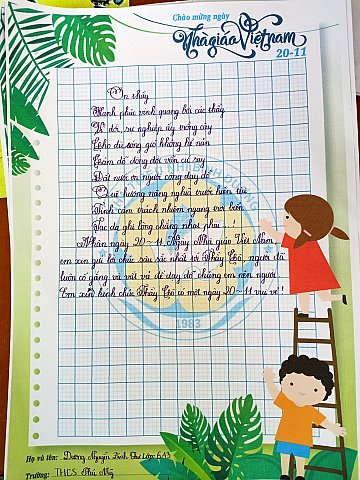 Chào mừng ngày
Nhà giáo Việt Nam
20-11
Ơn thầy
Hạnh phúc vinh quang bởi các thầy
Vì đời, sự nghiệp ấy trồng cây
Cho dù sóng gió không hề nản
Chăm dỗ dòng đời vẫn cứ say
Đất nước ơn người công dạy dỗ
Quê hương nặng nghĩa trước hiên tài
Tình cảm trách nhiệm ngang trời biển
Tạc dạ ghi lòng chẳng nhạt phai
Nhân ngày 20-11 Ngày Nhà giáo Việt Nam,
em xin gửi lời chúc sâu sắc nhất tới Thầy Cô, người đã
luôn cố gắng và vất vả để dạy dỗ chúng em nên người
Em xin kính chúc Thầy Cô có một ngày 20-11 vui vẻ!
1983
Họ và tên: Dương Nguyễn Anh Thư Lớp: 6A3
Trường: THCS Phú Mỹ